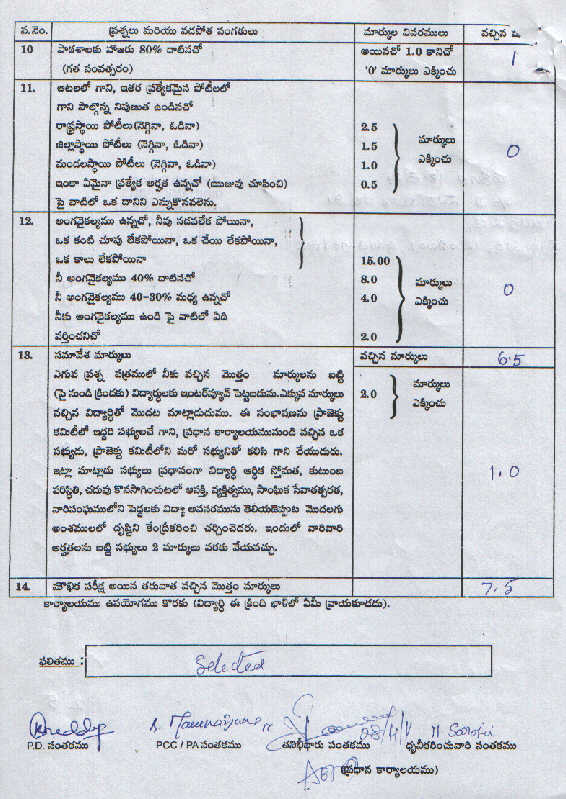 వ.నెం. ప్రశ్నలు మరియు వడపోత సంగతులు మార్కుల వివరములు వచ్చిన
10 పాఠశాలకు హాజరు 80% దాటినచో అయినచో 1.0 కానిచో 1
(గత సంవత్సరం) '0' మార్కులు ఎక్కించు
11. ఆటలలో గాని, ఇతర ప్రత్యేకమైన పోటీలలో
గాని పాల్గొన్న నిపుణత ఉండినచో
రాష్ట్రస్థాయి పోటీలు (నెగ్గినా, ఓడినా) 2.5 మార్కులు 0
జిల్లాస్థాయి పోటీలు (నెగ్గినా, ఓడినా) 1.5 ఎక్కించు
మండలస్థాయి పోటీలు (నెగ్గినా, ఓడినా) 1.0
ఇంకా ఏమైనా ప్రత్యేక అర్హత ఉన్నచో (ఋజువు చూపించి) 0.5
పై వాటిలో ఒక దానిని ఎన్నుకొనవలెను.
12. అంగవైకల్యము ఉన్నచో, నీవు నడవలేక పోయినా,
ఒక కంటి చూపు లేకపోయినా, ఒక చేయి లేకపోయినా,
ఒక కాలు లేకపోయినా 15.00
నీ అంగవైకల్యము 40% దాటినచో 8.0 మార్కులు 0
నీ అంగవైకల్యము 40-30% మధ్య ఉన్నచో 4.0 ఎక్కించు
నీకు అంగవైకల్యము ఉండి పై వాటిలో ఏది
వర్తించనిచో 2.0
13. సమావేశ మార్కులు వచ్చిన మార్కులు 6.5
ఎగువ ప్రశ్న పత్రములో నీకు వచ్చిన మొత్తం మార్కులను బట్టి 2.0 మార్కులు
(పై నుండి క్రిందకు) విద్యార్థులకు ఇంటర్వ్యూన్ పెట్టబడును.ఎక్కువ మార్కులు ఎక్కించు
వచ్చిన విద్యార్థితో మొదట మాట్లాడుదుము. ఈ సంభాషణను ప్రాజెక్టు
కమిటీలో ఇద్దరి సభ్యులచే గాని, ప్రధాన కార్యాలయమునుండి వచ్చిన ఒక
సభ్యుడు, ప్రాజెక్టు కమిటీలోని మరో సభ్యునితో కలిసి గాని చేయుదురు.
ఇట్లా మాట్లాడు సభ్యులు ప్రధానంగా విద్యార్థి ఆర్థిక స్తోమత, కుటుంబ 1.0
పరిస్థితి, చదువు కొనసాగించుటలో ఆసక్తి, వ్యక్తిత్వము, సాంఘిక సేవాతత్పరత,
వారిసంఘములోని పెద్దలకు విద్యా అవసరమును తెలియజెప్పుట మొదలగు
అంశములలో దృష్టిని కేంద్రీకరించి చర్చించెదరు. ఇందులో వారివారి
అర్హతలను బట్టి సభ్యులు 2 మార్కులు వరకు వేయవచ్చు.
14. మౌఖిక పరీక్ష అయిన తరువాత వచ్చిన మొత్తం మార్కులు 7.5
కార్యాలయము ఉపయోగము కొరకు (విద్యార్థి ఈ క్రింది భాగంలో ఏమీ వ్రాయకూడదు).
ఫలితము : Selected
P.D. సంతకము PCC / PA సంతకము తనిఖీదారు సంతకము ధృవీకరించువారి సంతకము
(ప్రధాన కార్యాలయము)